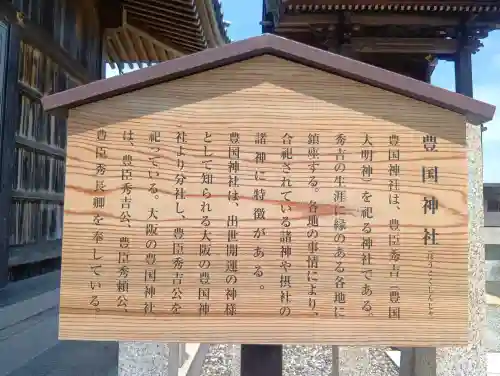 豊国神社
ほうこくじんじゃ
豊国神社は、豊臣秀吉（豊国
大明神）を祀る神社である。
秀吉の生涯に縁のある各地に
鎮座する。各地の事情により、
合祀されている諸神や摂社の
諸神に特徴がある。
豊国神社は、出世開運の神様
として知られる大阪の豊国神
社より分社し、豊臣秀吉公を
祀っている。大阪の豊国神社
は、豊臣秀吉公、豊臣秀頼公、
豊臣秀長卿を奉している。